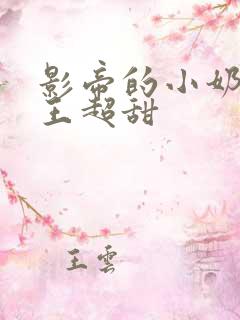 影帝的小奶
王超甜
王雲